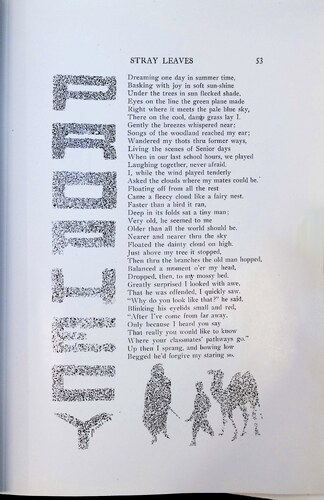 STRAY LEAVES 53
PROPHECY
Dreaming one day in summer time,
Basking with joy in soft sun-shine
Under the trees in sun flecked shade,
Eyes on the line the green plane made
Right where it meets the pale blue sky,
There on the cool, damp grass lay I.
Gently the breezes whispered near;
Songs of the woodland reached my ear;
Wandered my thots thru former ways,
Living the scenes of Senior days
When in our last school hours, we played
Laughing together, never afraid.
I, while the wind played tenderly
Asked the clouds where my mates could be.
Floating off from all the rest
Came a fleecy cloud like a fairy nest.
Faster than a bird it ran,
Deep in its folds sat a tiny man;
Very old, he seemed to me
Older than all the world should be.
Nearer and nearer thru the sky
Floated the dainty cloud on high.
Just above my tree it stopped,
Then thru the branches the old man hopped,
Balanced a moment o'er my head,
Dropped, then, to my mossy bed.
Greatly surprised I looked with awe,
That he was offended, I quickly saw.
"Why do you look like that?" he said,
Blinking his eyelids small and red,
"After I've come from far away,
Only because I heard you say
That really you would like to know
Where your classmates' pathways go."
Up then I sprang, and bowing low
Begged he'd forgive my staring so.